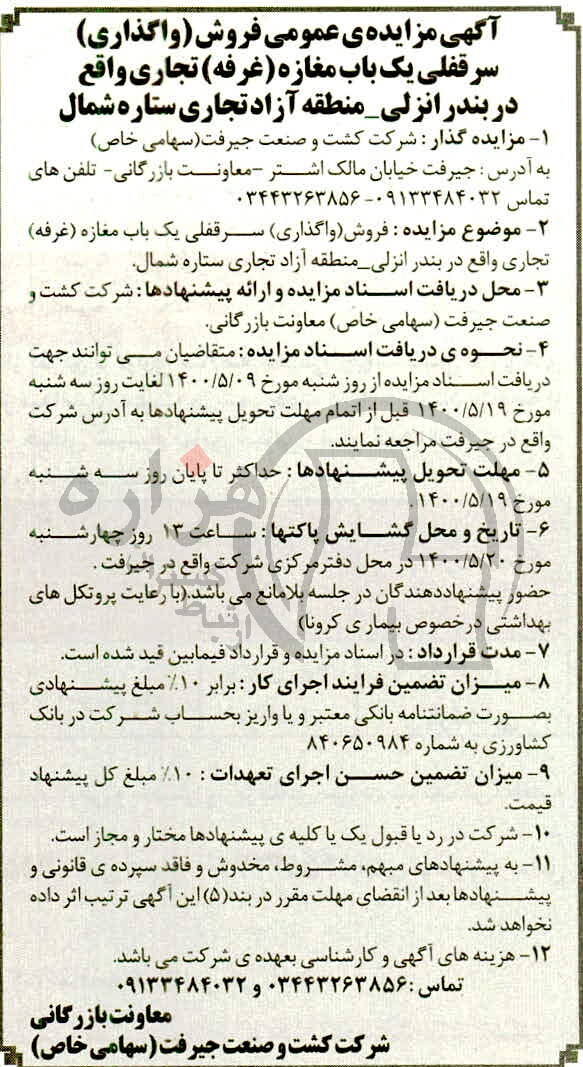 آگهی مزایده‌ی عمومی فروش (واگذاری)
سرقفلی یک باب مغازه (غرفه) تجاری واقع
در بندر انزلی_منطقه آزاد تجاری ستاره شمال
۱- مزایده گذار : شرکت کشت و صنعت جیرفت(سهامی خاص)
به آدرس : جیرفت خیابان مالک اشتر -معاونت بازرگانی- تلفن های
تماس ۰۹۱۳۳۴۸۴۰۳۲- ۰۳۴۴۳۲۶۳۸۵۶
۲- موضوع مزایده : فروش(واگذاری) سرقفلی یک باب مغازه (غرفه)
تجاری واقع در بندر انزلی_منطقه آزاد تجاری ستاره شمال.
۳- محل دریافت اسناد مزایده و ارائه پیشنهادها : شرکت کشت و
صنعت جیرفت (سهامی خاص) معاونت بازرگانی.
۴- نحوه ی دریافت اسناد مزایده : متقاضیان می توانند جهت
دریافت اسناد مزایده از روز شنبه مورخ ۱۴۰۰/۵/۰۹ لغایت روز سه شنبه
مورخ ۱۴۰۰/۵/۱۹ قبل از اتمام مهلت تحویل پیشنهادها به آدرس شرکت
واقع در جیرفت مراجعه نمایند.
۵- مهلت تحویل پیشنهادها : حداکثر تا پایان روز سه شنبه
مورخ ۱۴۰۰/۵/۱۹ .
۶- تاریخ و محل گشایش پاکتها : ساعت ۱۳ روز چهارشنبه
مورخ ۱۴۰۰/۵/۲۰ در محل دفترمرکزی شرکت واقع در جیرفت .
حضور پیشنهاددهندگان در جلسه بلامانع می باشد.(با رعایت پروتکل های
بهداشتی درخصوص بیماری کرونا)
۷- مدت قرارداد : در اسناد مزایده و قرارداد فیمابین قید شده است.
۸- میزان تضمین فرایند اجرای کار : برابر ۱۰٪ مبلغ پیشنهادی
بصورت ضمانتنامه بانکی معتبر و یا واریز بحساب شرکت در بانک
کشاورزی به شماره ۸۴۰۶۵۰۹۸۴
۹- میزان تضمین حسن اجرای تعهدات : ۱۰٪ مبلغ کل پیشنهاد
قیمت.
۱۰- شرکت در رد یا قبول یک یا کلیه ی پیشنهادها مختار و مجاز است.
۱۱- به پیشنهادهای مبهم، مشروط، مخدوش و فاقد سپرده ی قانونی و
پیشنهادها بعد از انقضای مهلت مقرر در بند(۵) این آگهی ترتیب اثر داده
نخواهد شد.
۱۲- هزینه های آگهی و کارشناسی بعهده ی شرکت می باشد.
تماس :۰۳۴۴۳۲۶۳۸۵۶ و ۰۹۱۳۳۴۸۴۰۳۲
معاونت بازرگانی
شرکت کشت و صنعت جیرفت (سهامی خاص)
هزاره